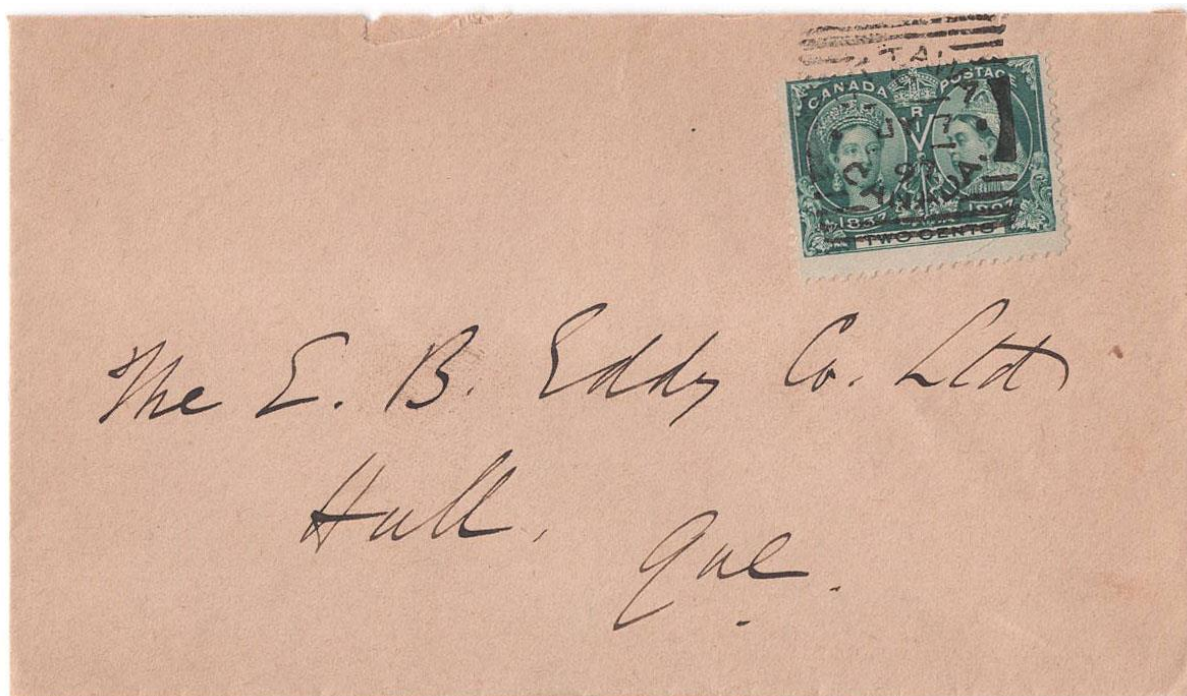 CANADA POSTAGE
V R I
1837 1897
TWO CENTS
97
CANADA.
The E. B. Eddy Co. Ltd
Hull,
Que.